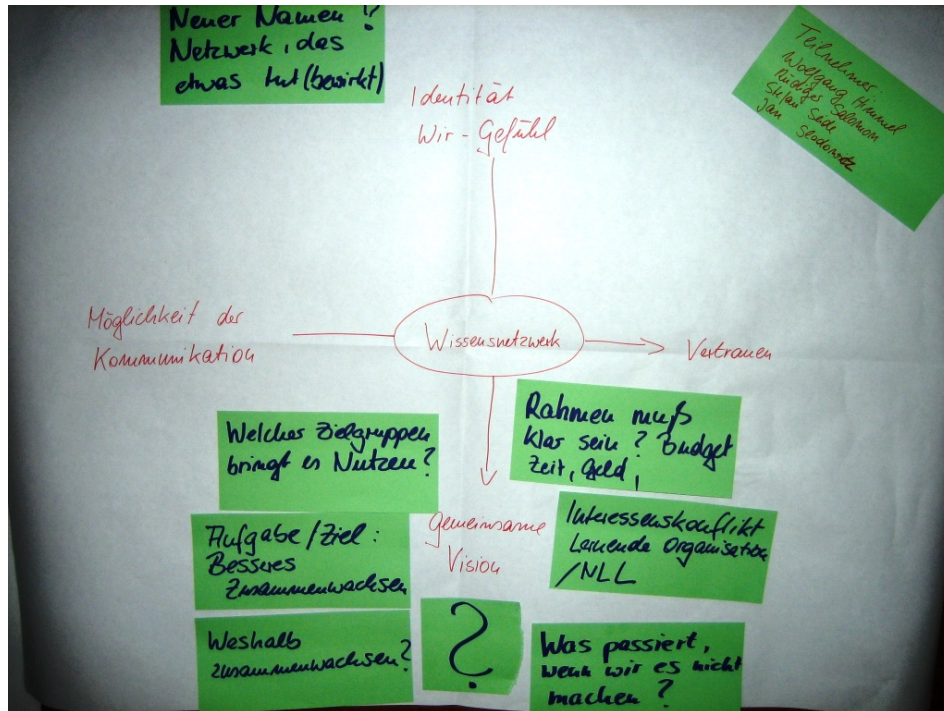 Neuer Namen ?
Netzwerk, das
etwas tut (bewirkt)
Teilnehmer:
Wolfgang Himmel
Rüdiger Salomon
Stefan
Jan
Identität
Wir - Gefühl
Möglichkeit der
Kommunikation
Wissensnetzwerk
Vertrauen
Welcher Zielgruppen
bringt es Nutzen?
Rahmen muß
klar sein ? Budget
Zeit, Geld,
Aufgabe/Ziel:
Besseres
Zusammenwachsen
Gemeinsame
Vision
Interessenskonflikt
Lernende Organisation
/NLL
Weshalb
zusammenwachsen?
?
Was passiert,
wenn wir es nicht
machen ?